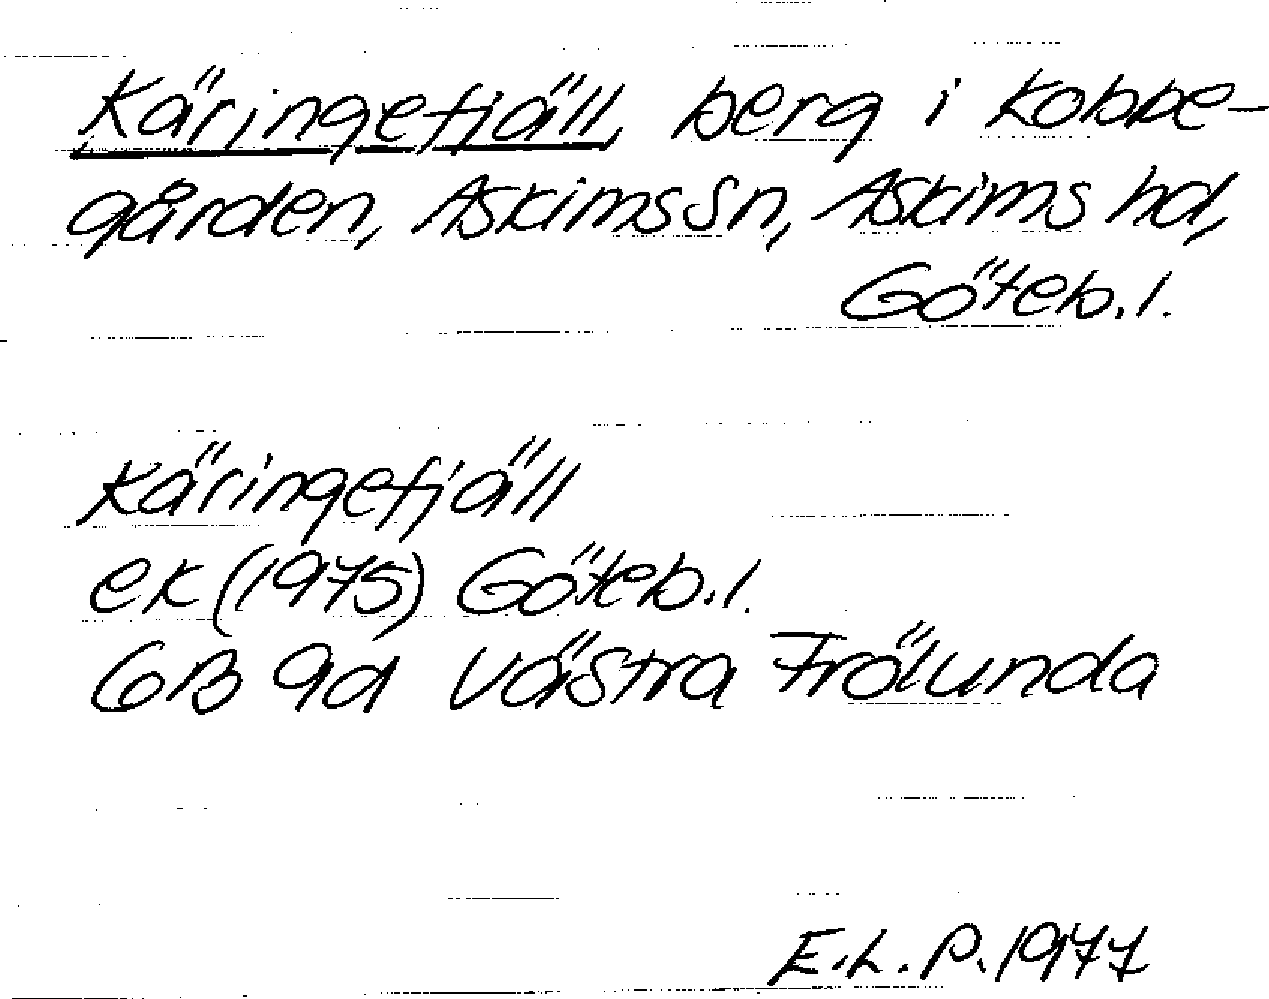 Käringefjäll, berg i Kobbe-
gården, Askims sn, Askims hd,
Göteb. l.
Käringefjäll
ek (1975) Göteb. l.
6B 9d Västra Frölunda
E.L.P. 1977